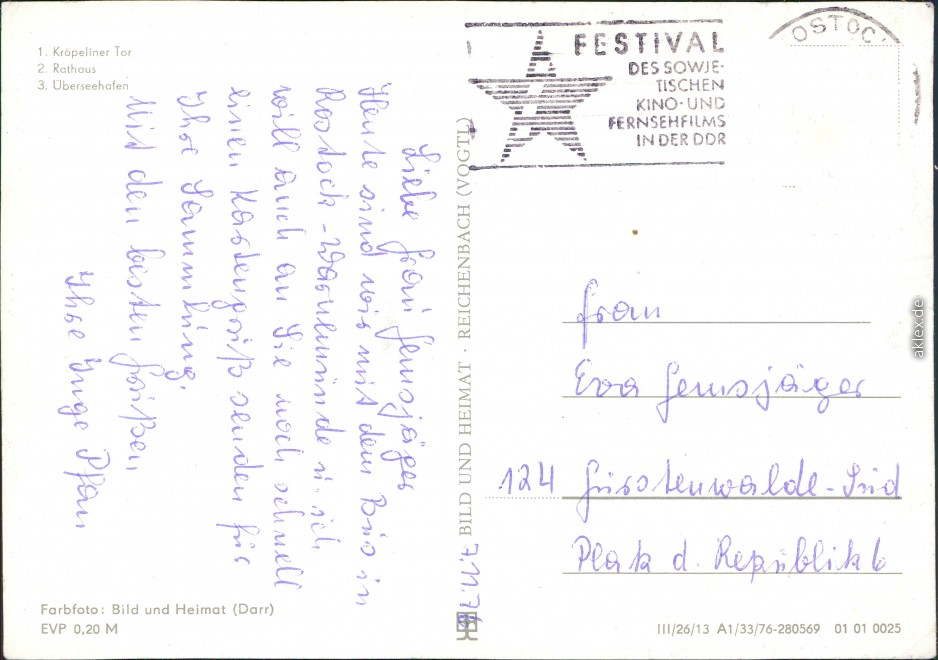 1. Kröpeliner Tor
2. Rathaus
3. Überseehafen
Liebe Frau Gemsjäger
Heute sind wir mit dem Bus in
Rostock - Warnemünde u. ich
will auch an Sie noch schnell
einen Kartengruß senden für
Ihre Sammlung.
Mit den besten Grüßen
Ihre Inge Pfau
7.11.76
Farbfoto: Bild und Heimat (Darr)
EVP 0,20 M
BILD UND HEIMAT · REICHENBACH (VOGTL)
FESTIVAL
DES SOWJE-
TISCHEN
KINO-UND
FERNSEHFILMS
IN DER DDR
OSTOC
Frau
Eva Gemsjäger
124 Fürstenwalde-Süd
Platz d. Republik 6
III/26/13 A1/33/76-280569 01 01 0025
aklex.de